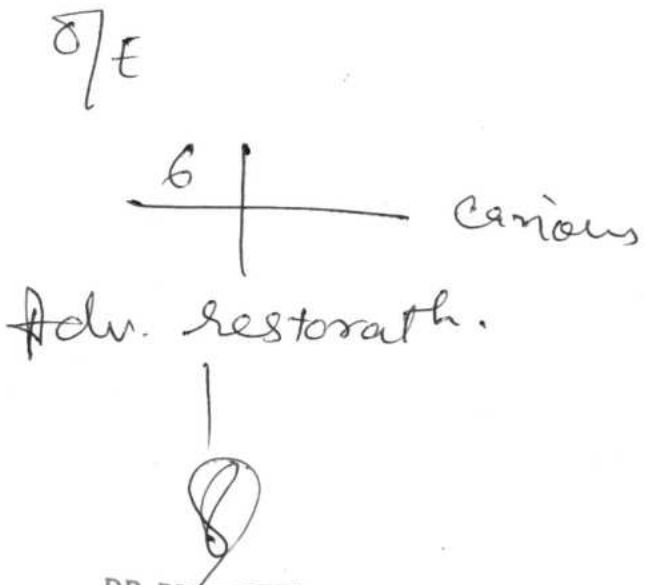 O/E
6
Carious
Adv. restorath.
DR